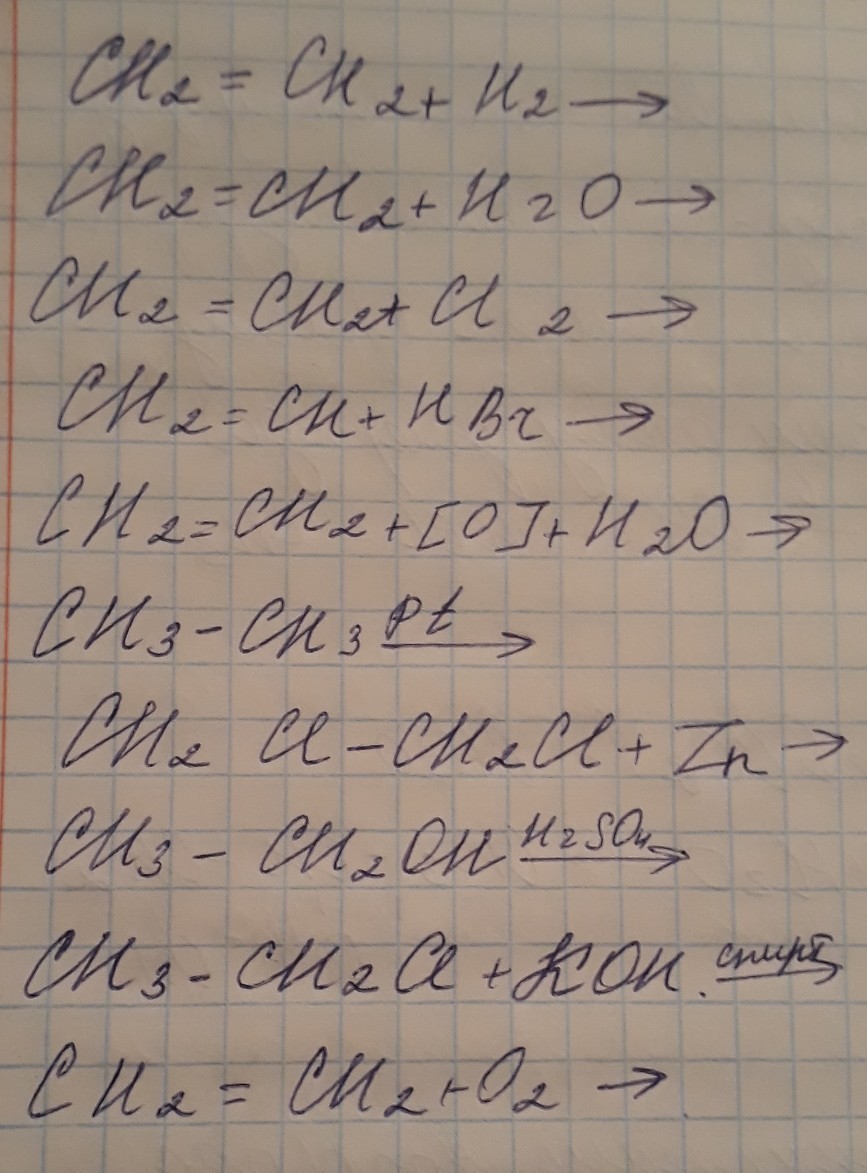 CH₂ = CH₂ + H₂ →
CH₂ = CH₂ + H₂O →
CH₂ = CH₂ + Cl₂ →
CH₂ = CH + HBr →
CH₂ = CH₂ + [O] + H₂O →
CH₃ – CH₃ Pt →
CH₂Cl – CH₂Cl + Zn →
CH₃ – CH₂OH H₂SO₄ →
CH₃ – CH₂Cl + KOH спирт →
CH₂ = CH₂ + O₂ →